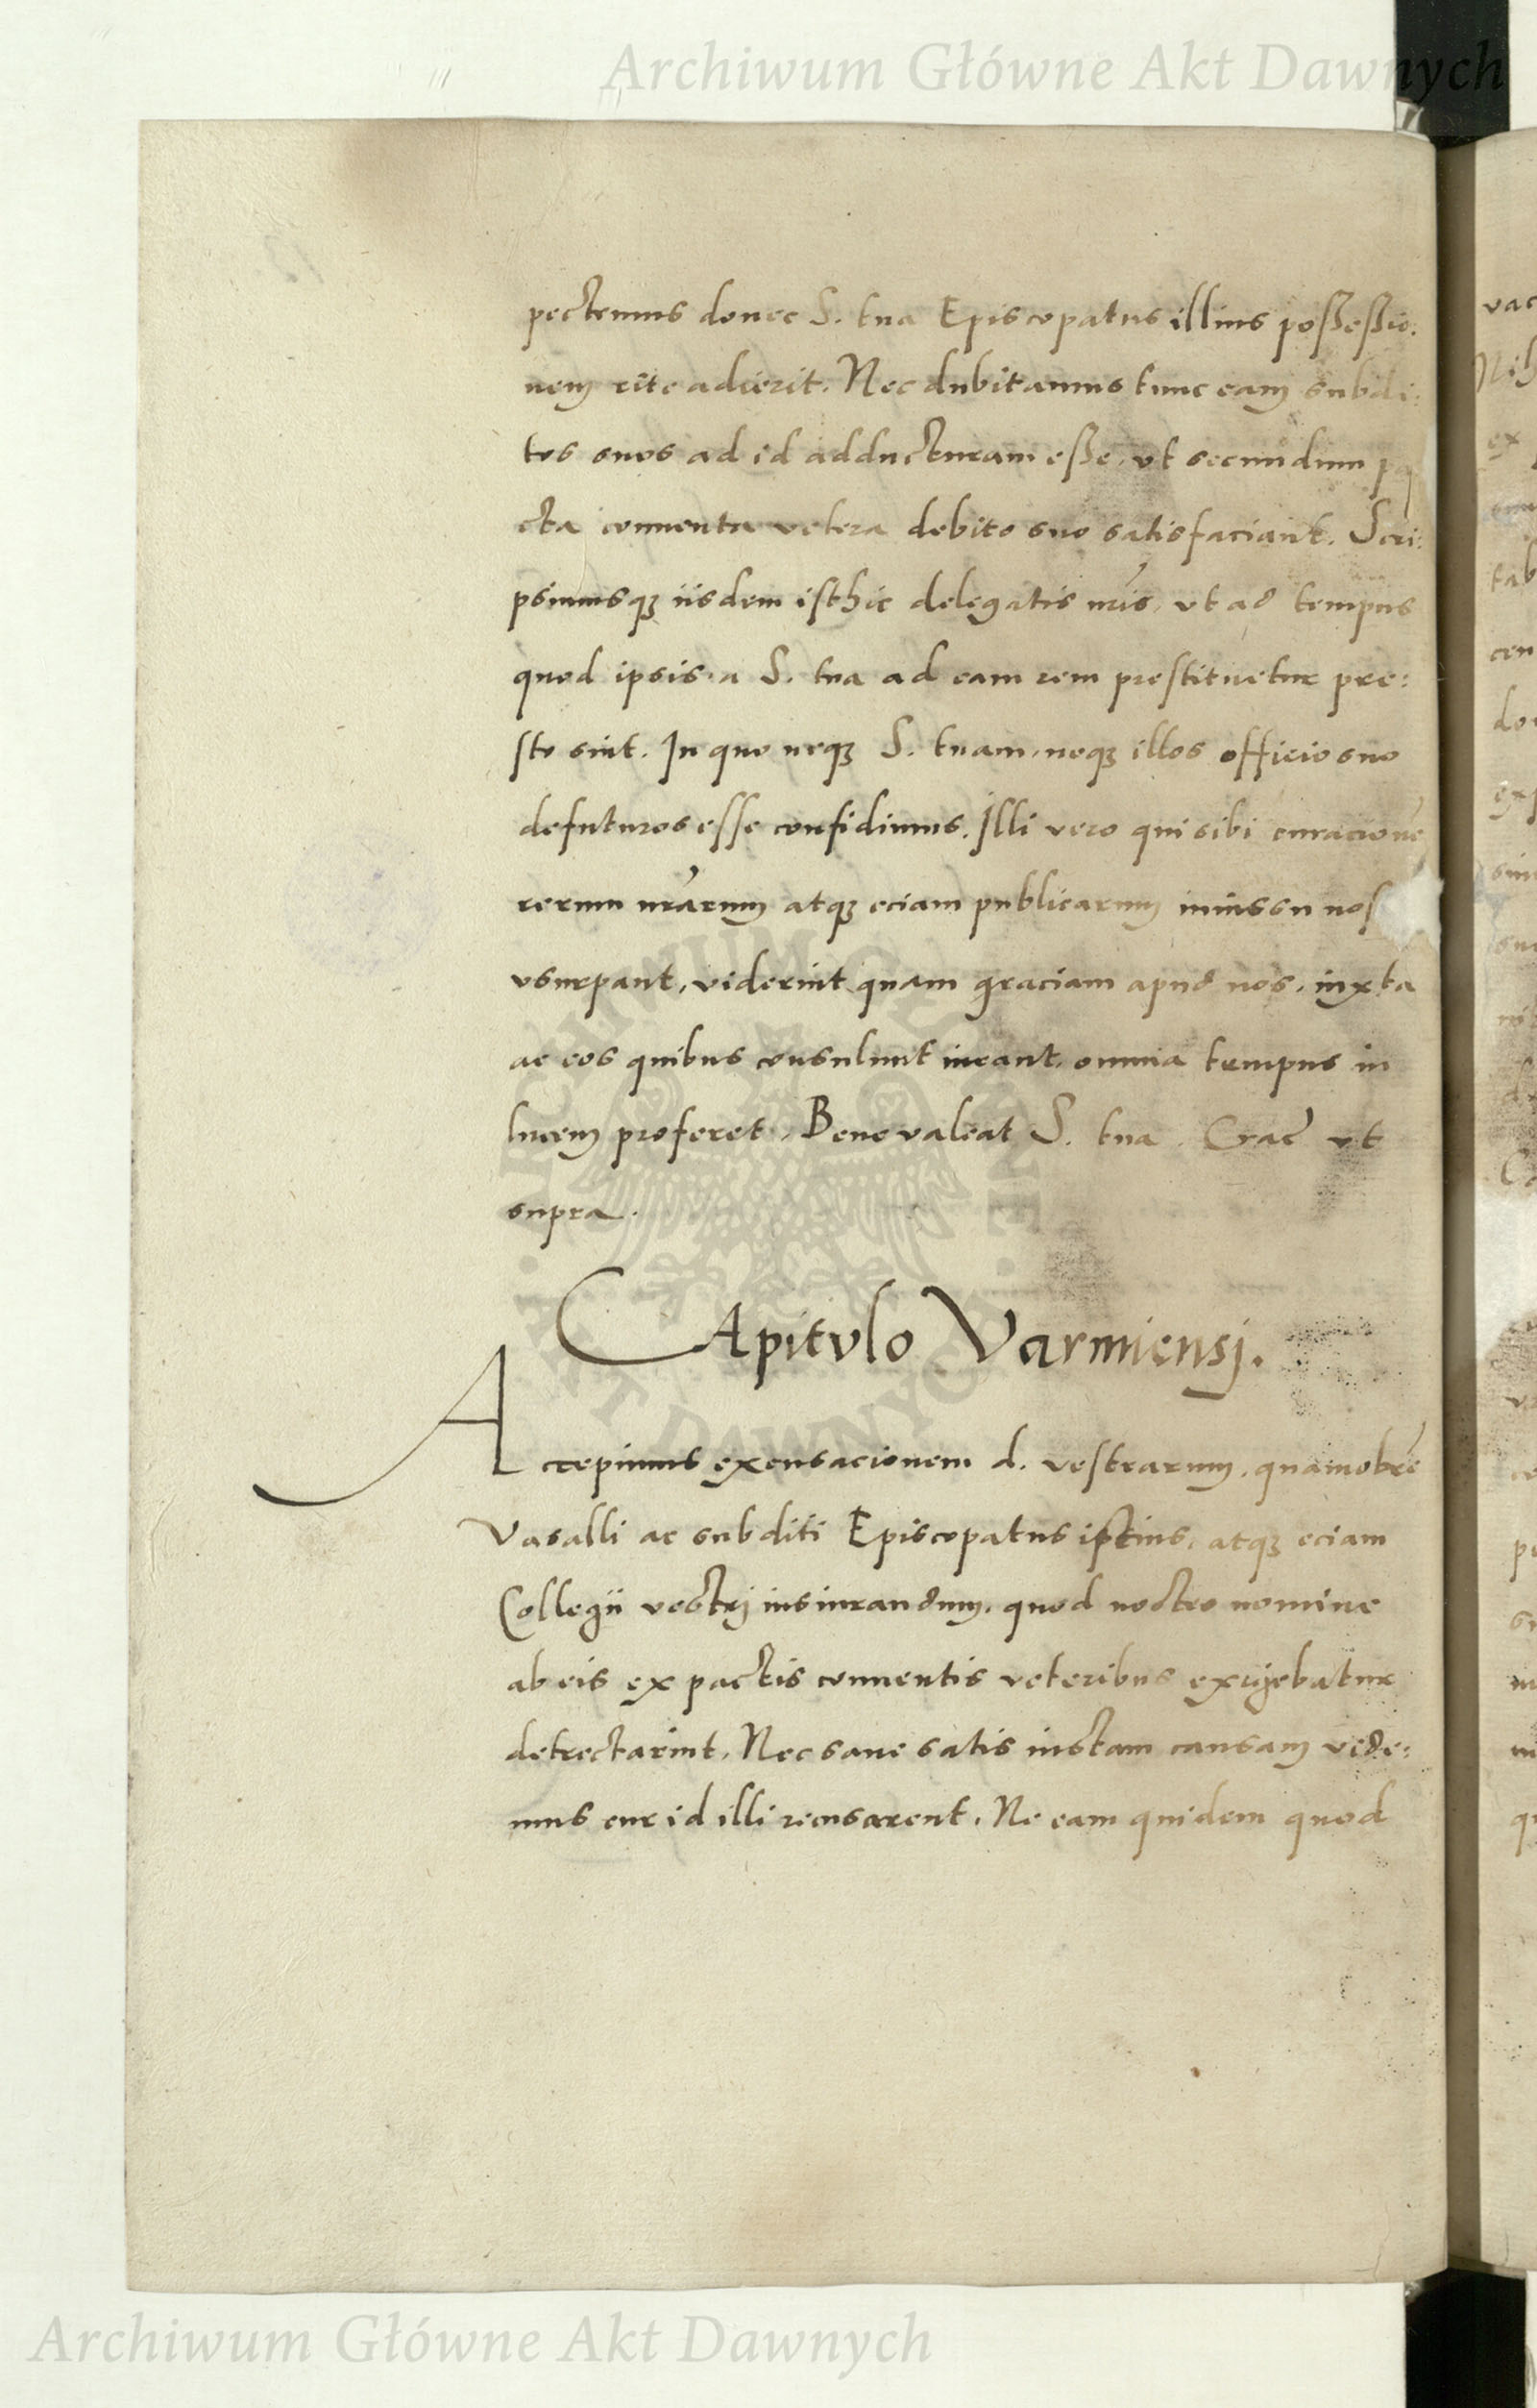 Archiwum Główne Akt Dawnych
pectemus donec S. tua Episcopatus illius possessio:
nem rite adierit. Nec dubitamus tunc eam subdi:
tos suos ad id adducturam esse, ut secundum pa
cta conuenta vetera debito suo satisfaciant. Scri:
psimusq3 iisdem isthic delegatis nr̃is, ut ad tempus
quod ipsis a S. tua ad eam rem prestituetur pre:
sto sint. In quo neq3 S. tuam, neq3 illos officio suo
defuturos esse confidimus. Illi vero qui sibi curacionẽ
rerum nr̃arum atq3 eciam publicarum iniussu nos
vsurpant, viderint quam graciam apud nos, iuxta
ac eos quibus consulunt ineant, omnia tempus in
lucem proferet. Bene valeat S. tua. Crac̃ ut
supra.
CApitvlo Varmiensj.
Accepimus excusacionem d. vestrarum, quamobrẽ
Vasalli ac subditi Episcopatus istius, atq3 eciam
Collegii vestrj iusiurandum, quod nostro nomine
ab eis ex pactis conuentis veteribus exigebatur
detrectarint. Nec sane satis iustam causam vide:
mus cur id illi recusarent. Ne eam quidem quod
Archiwum Główne Akt Dawnych